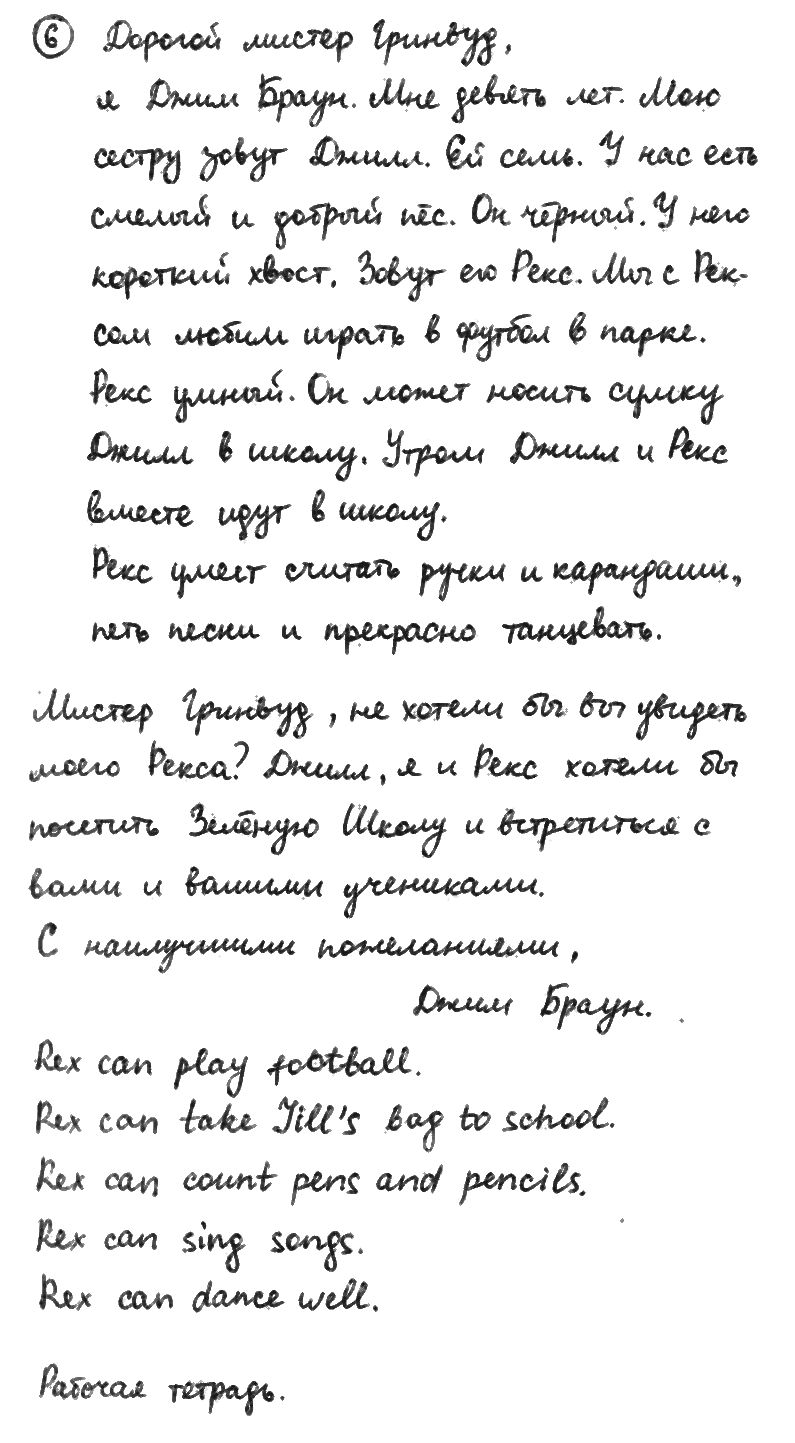 6 Дорогой мистер Гринвуд,
я Джим Браун. Мне девять лет. Мою
сестру зовут Джилл. Ей семь. У нас есть
смелый и добрый пёс. Он чёрный. У него
короткий хвост. Зовут его Рекс. Мы с Рек-
сом любим играть в футбол в парке.
Рекс умный. Он может носить сумку
Джилл в школу. Утром Джилл и Рекс
вместе идут в школу.
Рекс умеет считать ручки и карандаши,
петь песни и прекрасно танцевать.
Мистер Гринвуд, не хотели бы вы увидеть
моего Рекса? Джилл, я и Рекс хотели бы
посетить Зелёную Школу и встретиться с
вами и вашими учениками.
С наилучшими пожеланиями,
Джим Браун.
Rex can play football.
Rex can take Jill's bag to school.
Rex can count pens and pencils.
Rex can sing songs.
Rex can dance well.
Рабочая тетрадь.